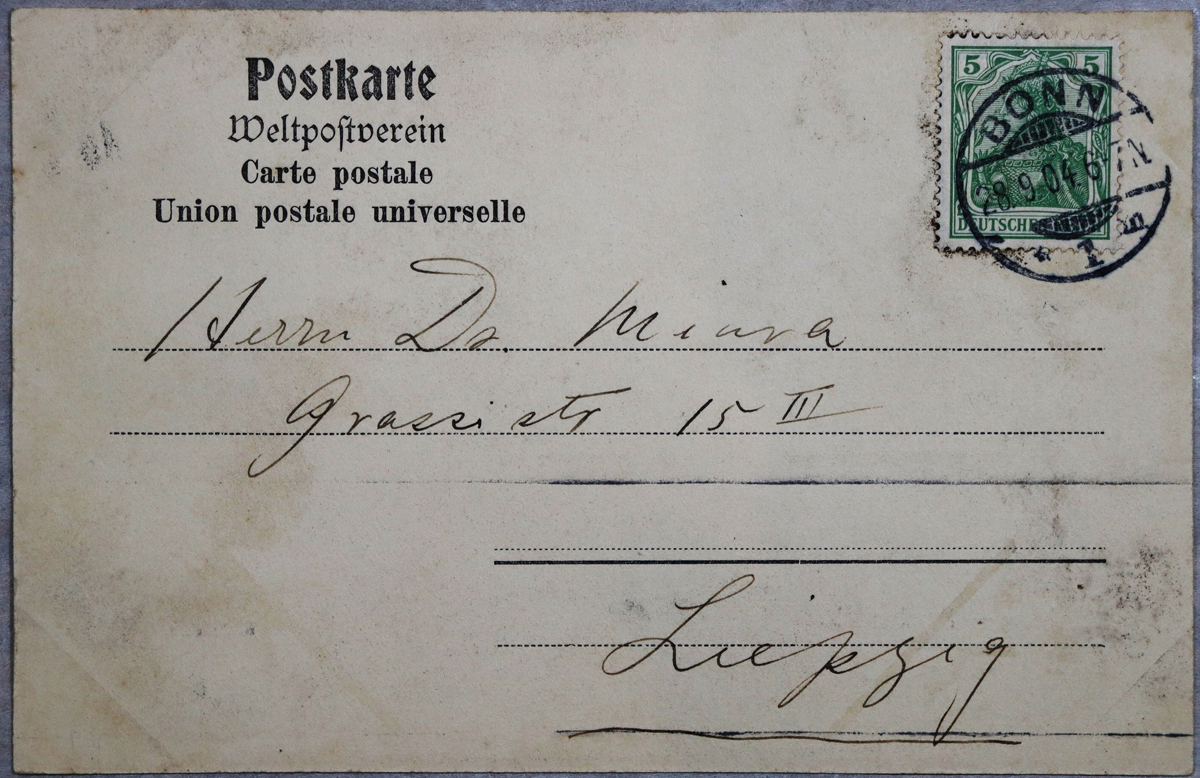 Postkarte
Weltpostverein
Carte postale
Union postale universelle
5 5
DEUTSCHES
BONN
28.9.04. 6-7N
* 1 h
Herrn Dr. Miura
Grassistr 15 III
Leipzig